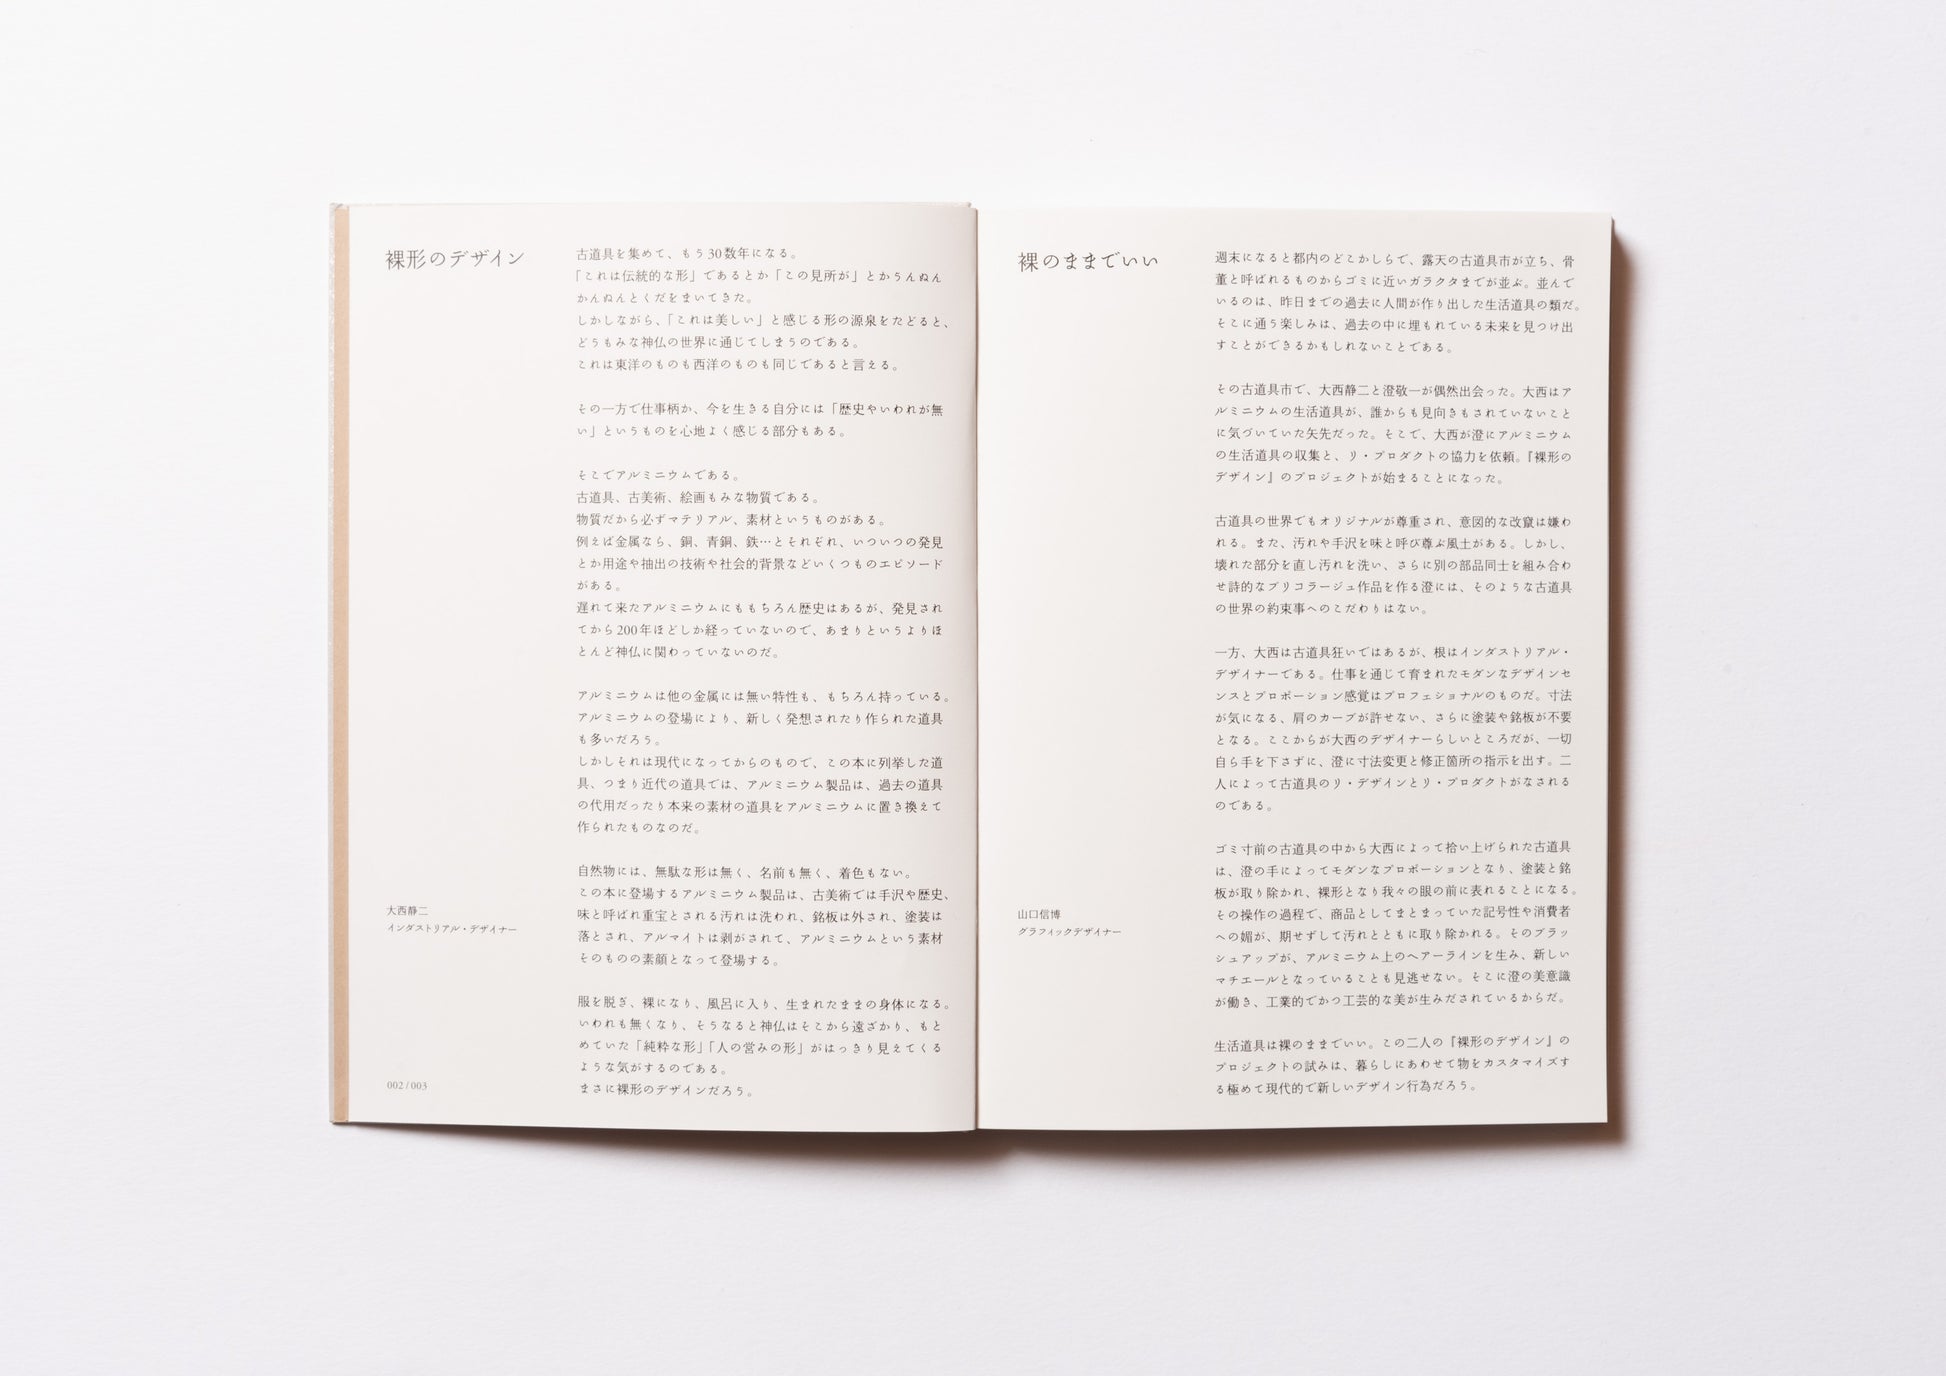 裸形のデザイン
古道具を集めて、もう30数年になる。
「これは伝統的な形」であるとか「この見所が」とかうんぬん
かんぬんとくだをまいてきた。
しかしながら、「これは美しい」と感じる形の源泉をたどると、
どうもみな神仏の世界に通じてしまうのである。
これは東洋のものも西洋のものも同じであると言える。
その一方で仕事柄か、今を生きる自分には「歴史やいわれが無
い」というものを心地よく感じる部分もある。
そこでアルミニウムである。
古道具、古美術、絵画もみな物質である。
物質だから必ずマテリアル、素材というものがある。
例えば金属なら、銅、青銅、鉄…とそれぞれ、いついつの発見
とか用途や抽出の技術や社会的背景などいくつものエピソード
がある。
遅れて来たアルミニウムにももちろん歴史はあるが、発見され
てから200年ほどしか経っていないので、あまりというよりほ
とんど神仏に関わっていないのだ。
アルミニウムは他の金属には無い特性も、もちろん持っている。
アルミニウムの登場により、新しく発想されたり作られた道具
も多いだろう。
しかしそれは現代になってからのもので、この本に列挙した道
具、つまり近代の道具では、アルミニウム製品は、過去の道具
の代用だったり本来の素材の道具をアルミニウムに置き換えて
作られたものなのだ。
自然物には、無駄な形は無く、名前も無く、着色もない。
この本に登場するアルミニウム製品は、古美術では手沢や歴史、
味と呼ばれ重宝とされる汚れは洗われ、銘板は外され、塗装は
落とされ、アルマイトは剥がされて、アルミニウムという素材
そのものの素顔となって登場する。
服を脱ぎ、裸になり、風呂に入り、生まれたままの身体になる。
いわれも無くなり、そうなると神仏はそこから遠ざかり、もと
めていた「純粋な形」「人の営みの形」がはっきり見えてくる
ような気がするのである。
まさに裸形のデザインだろう。
大西静二
インダストリアル・デザイナー
002 / 003
裸のままでいい
週末になると都内のどこかしらで、露天の古道具市が立ち、骨
董と呼ばれるものからゴミに近いガラクタまでが並ぶ。並んで
いるのは、昨日までの過去に人間が作り出した生活道具の類だ。
そこに通う楽しみは、過去の中に埋もれている未来を見つけ出
すことができるかもしれないことである。
その古道具市で、大西静二と澄敬一が偶然出会った。大西はア
ルミニウムの生活道具が、誰からも見向きもされていないこと
に気づいていた矢先だった。そこで、大西が澄にアルミニウム
の生活道具の収集と、リ・プロダクトの協力を依頼。『裸形の
デザイン』のプロジェクトが始まることになった。
古道具の世界でもオリジナルが尊重され、意図的な改竄は嫌わ
れる。また、汚れや手沢を味と呼び尊ぶ風土がある。しかし、
壊れた部分を直し汚れを洗い、さらに別の部品同士を組み合わ
せ詩的なブリコラージュ作品を作る澄には、そのような古道具
の世界の約束事へのこだわりはない。
一方、大西は古道具狂いではあるが、根はインダストリアル・
デザイナーである。仕事を通じて育まれたモダンなデザインセ
ンスとプロポーション感覚はプロフェショナルのものだ。寸法
が気になる、肩のカーブが許せない、さらに塗装や銘板が不要
となる。ここからが大西のデザイナーらしいところだが、一切
自ら手を下さずに、澄に寸法変更と修正箇所の指示を出す。二
人によって古道具のリ・デザインとリ・プロダクトがなされる
のである。
ゴミ寸前の古道具の中から大西によって拾い上げられた古道具
は、澄の手によってモダンなプロポーションとなり、塗装と銘
板が取り除かれ、裸形となり我々の眼の前に表れることになる。
その操作の過程で、商品としてまとまっていた記号性や消費者
への媚が、期せずして汚れとともに取り除かれる。そのブラッ
シュアップが、アルミニウム上のヘアーラインを生み、新しい
マチエールとなっていることも見逃せない。そこに澄の美意識
が働き、工業的でかつ工芸的な美が生みだされているからだ。
生活道具は裸のままでいい。この二人の『裸形のデザイン』の
プロジェクトの試みは、暮らしにあわせて物をカスタマイズす
る極めて現代的で新しいデザイン行為だろう。
山口信博
グラフィックデザイナー